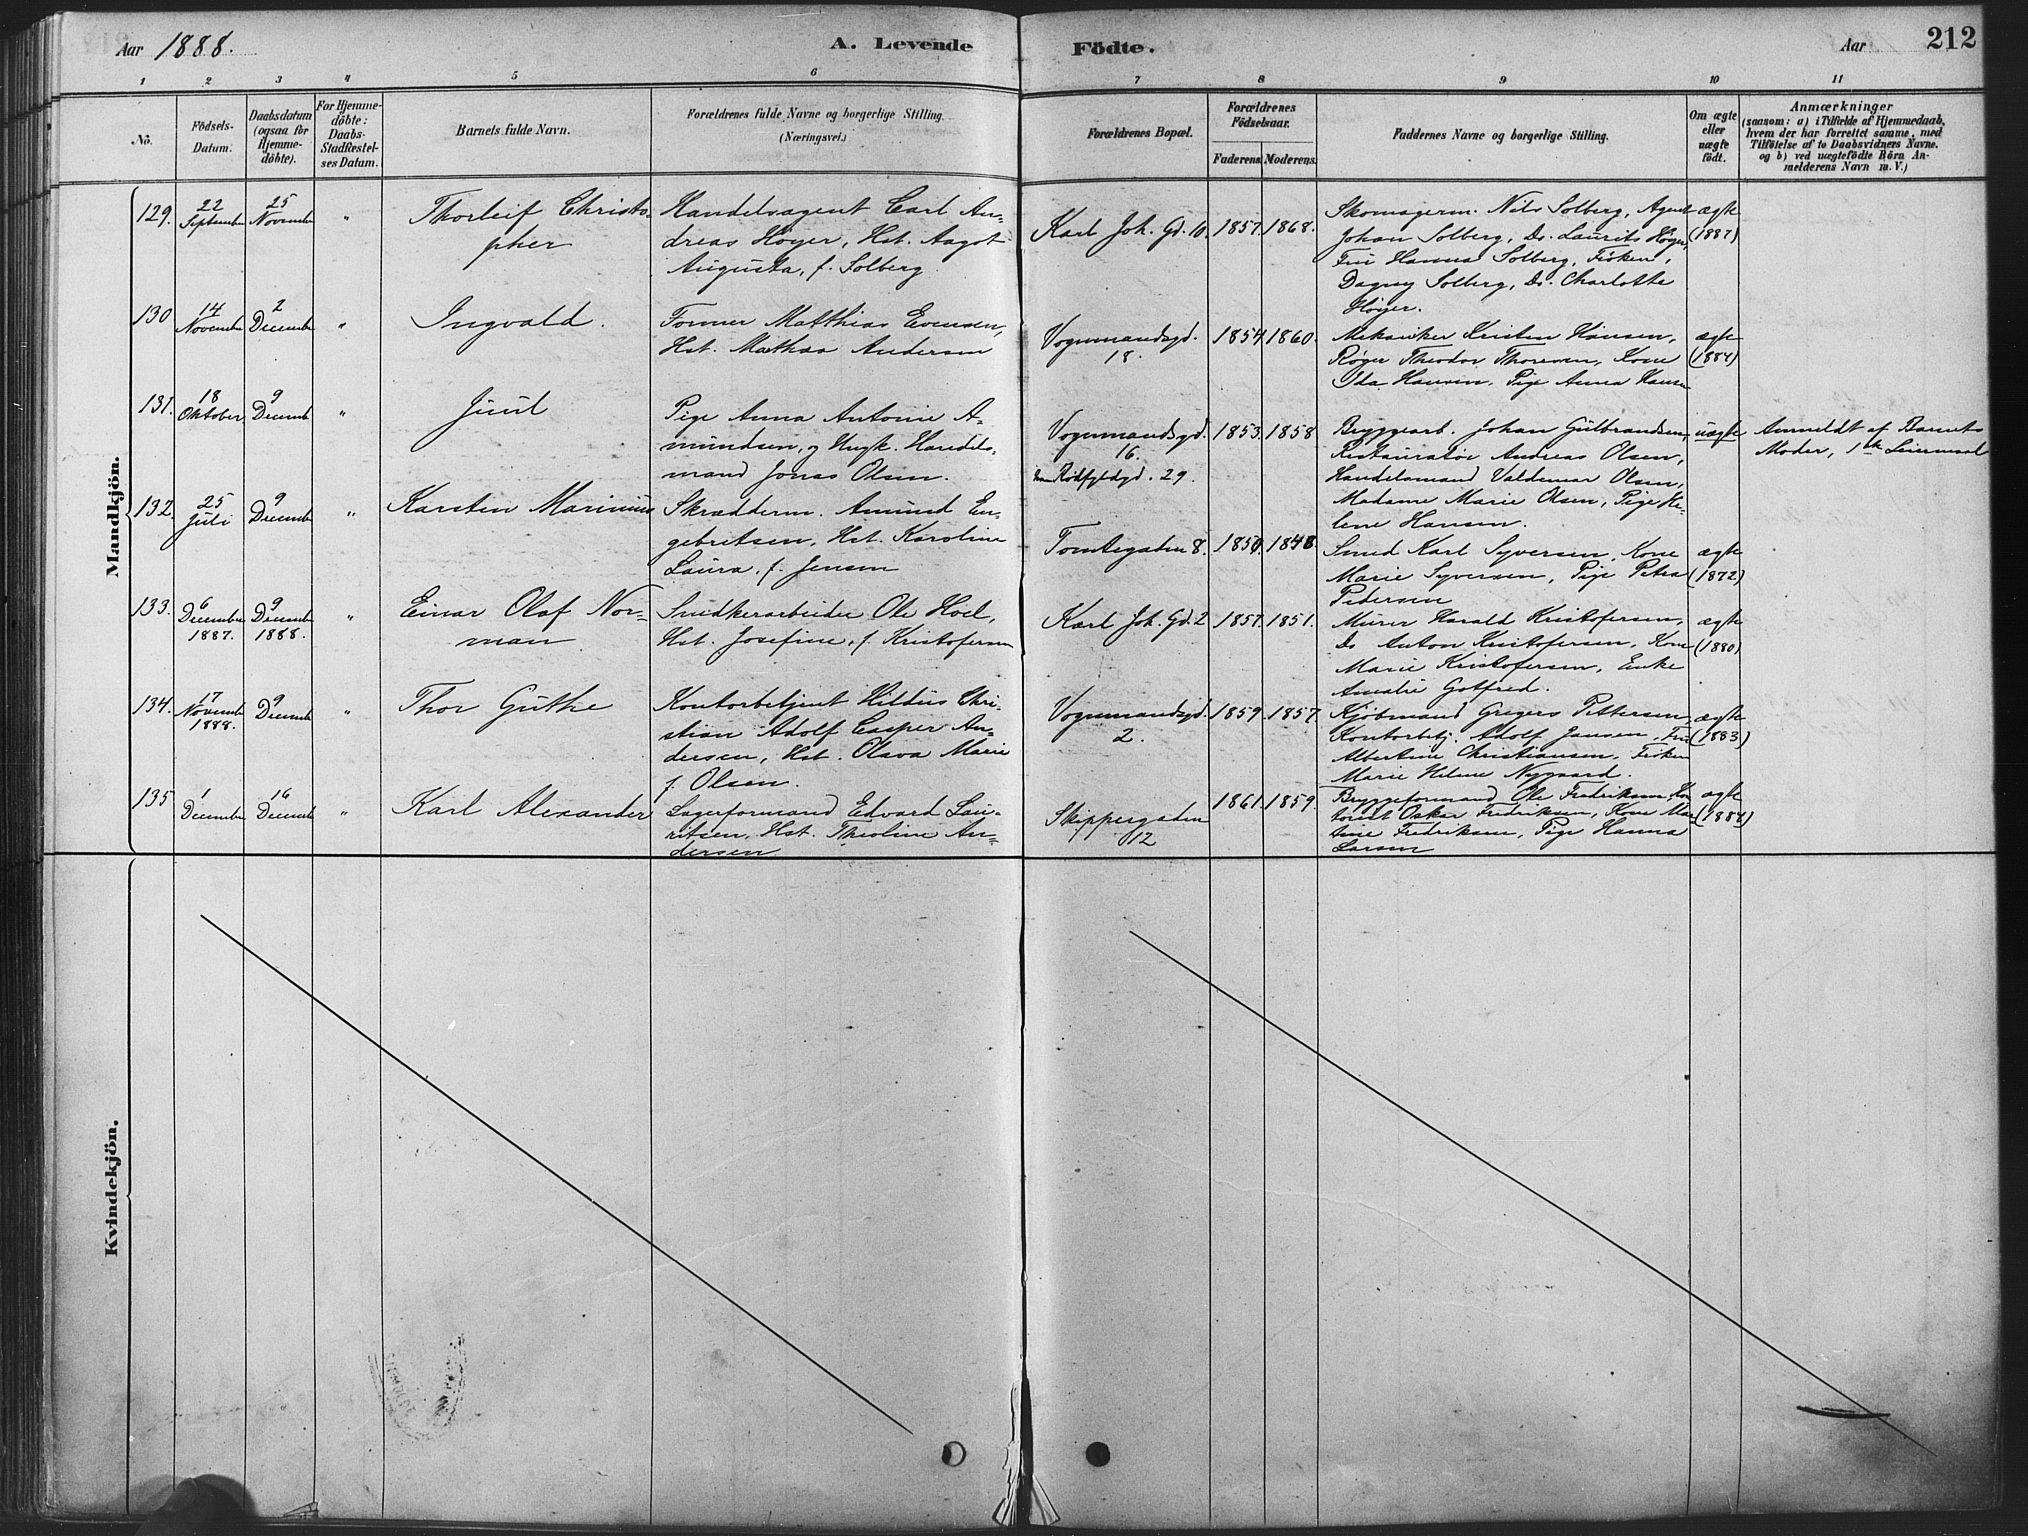 Aar 1888.
A. Levende Födte.
Aar
212
1 2 3 4 5 6 7 8 9 10 11
No.
Födsels-
Datum.
Daabsdatum
(ogsaa for
Hjemme-
döbte).
For Hjemme-
döbte:
Daabs-
Stadfæstel-
ses Datum.
Barnets fulde Navn.
Forældrenes fulde Navne og borgerlige Stilling.
(Næringsvei.)
Forældrenes Bopæl.
Forældrenes
Födselsaar.
Faderens. Moderens.
Faddernes Navne og borgerlige Stilling.
Om ægte
eller
uægte
födt.
Anmærkninger
(saasom: a) i Tilfælde af Hjemmedaab,
hvem der har forrettet samme, med
Tilföielse af to Daabsvidners Navne.
og b) ved uægtefödte Börn An-
melderens Navn m. V.)
Mandkjön.
129.
22
September
25
November
"
Thorleif Christo-
pher
Handelsagent Carl An-
dreas Höyer, Hst. Aagot
Augusta, f. Solberg.
Karl Joh. Gd. 10.
1857. 1868.
Skomagerm. Nils Solberg, Agent
Johan Solberg, Do. Laurits Höyer,
Fru Hanna Solberg, Fröken,
Dagny Solberg, Do. Charlotte
Höyer.
ægte
(1887)
130
14
November
2
December
"
Ingvald.
Former Matthias Evensen,
Hst. Mathea Andersen
Vognmandsgd.
18.
1854 1860.
Mekaniker Kristen Hansen,
Röger Theodor Thoresen, Kone
Ida Hansen, Pige Anna Hansen
ægte
(1884)
131.
18
Oktober
9
Decemb
"
Juul
Pige Anna Antonie A-
mundsen, og Ungk. Handels-
mand Jonas Olsen.
Vognmandsgd.
16.
Rödfyldgd. 29.
1853. 1858
Bryggearb. Johan Gulbrandsen,
Restauratör Andreas Olsen,
Handelsmand Valdemar Olsen,
Madame Marie Olsen, Pige He-
lene Hansen.
uægte
Anmeldt af Barnets
Moder, 1ste Leiermaal
132.
25
Juli
9
Decemb
"
Karsten Marinius
Skrædderm. Amund En-
gebretsen, Hst. Karoline
Laura, f. Jensen
Tomtegaden 8.
1850. 1848.
Smed Karl Syversen, Kone
Marie Syversen, Pige Petra
Pedersen
ægte
(1872)
133.
6
December
1887.
9
Decemb
1888.
"
Einar Olaf Nor-
man
Snedkerarbeider Ole Hoel,
Hst. Josefine, f. Kristofersen
Karl Joh. Gd. 2
1857. 1851.
Murer Harald Kristofersen,
Do Anton Kristofersen, Kone
Marie Kristofersen, Enke
Amalie Gotfred.
ægte
(1880)
134.
17
November
1888.
9
Decemb
"
Thor Guthe
Kontorbetjent Hildus Chri-
stian Adolf Casper An-
dersen, Hst. Olava Marie
f. Olsen.
Vognmandsgd.
2.
1859. 1857.
Kjöbmand Gregers Pettersen,
Kontorbetj. Adolf Jansen, Fru
Albertine Christiansen, Fröken
Marie Helene Nygaard.
ægte
(1883)
135
1
December
16
Decemb
"
Karl Alexander
Lagerformand Edvard Lau-
ritsen, Hst. Theoline An-
dersen
Skippergaden
12
1861. 1859.
Bryggeformand Ole Fredriksen,
Oskar Fredriksen, Kone Mar-
tine Fredriksen, Pige Hanna
Larsen
ægte
(1884)
Kvindekjön.